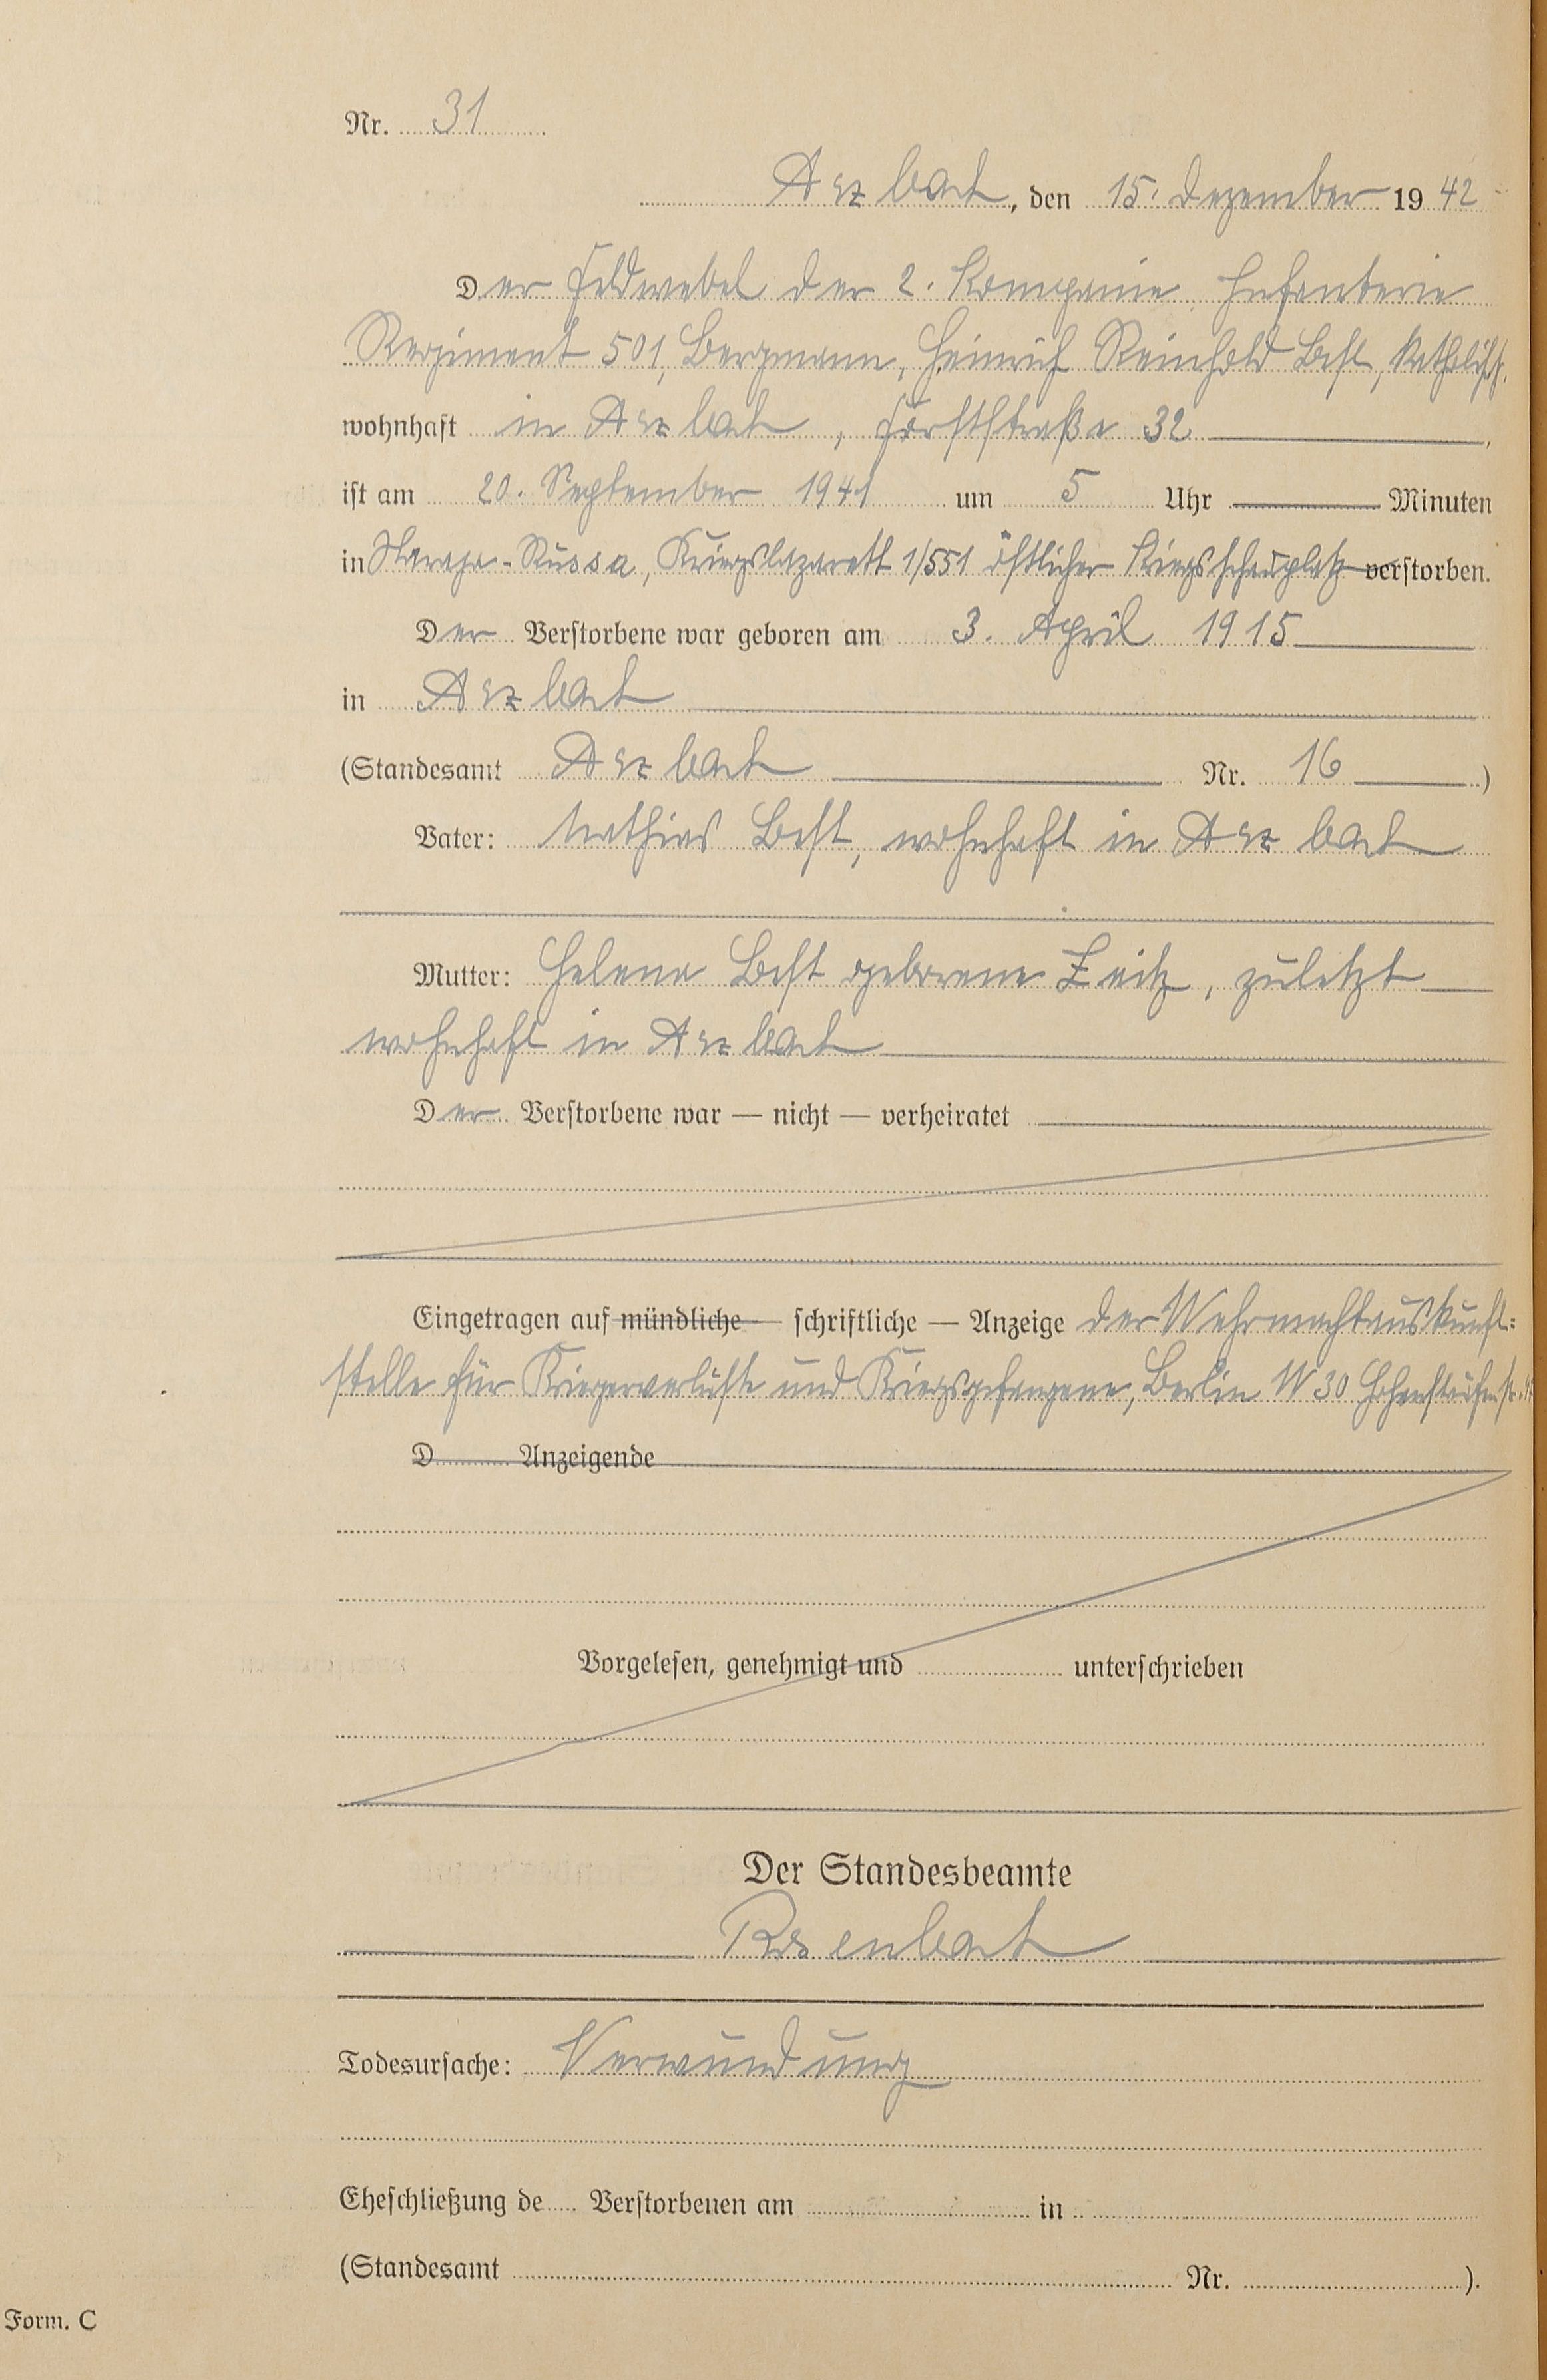 Nr. 31
Arzbach, den 15. Dezember 1942
Der Feldwebel der 2. Kompanie Infanterie
Regiment 501, Bergmann, Heinrich Reinhold Best, katholisch,
wohnhaft in Arzbach, Forststraße 32,
ist am 20. September 1941 um 5 Uhr Minuten
in Staraja-Russa, Kriegslazarett 1/551 östlicher Kriegsschauplatz verstorben.
Der Verstorbene war geboren am 3. April 1915
in Arzbach
(Standesamt Arzbach Nr. 16)
Vater: Mathias Best, wohnhaft in Arzbach
Mutter: Helene Best geborene Zeitz, zuletzt
wohnhaft in Arzbach
Der Verstorbene war — nicht — verheiratet
Eingetragen auf mündliche — schriftliche — Anzeige der Wehrmachtauskunft-
stelle für Kriegerverluste und Kriegsgefangene, Berlin W 30 Hohenstaufenstr.
D Anzeigende
Vorgelesen, genehmigt und unterschrieben
Der Standesbeamte
Rosenbach
Todesursache: Verwundung
Eheschließung de Verstorbenen am in
(Standesamt Nr. ).
Form. C